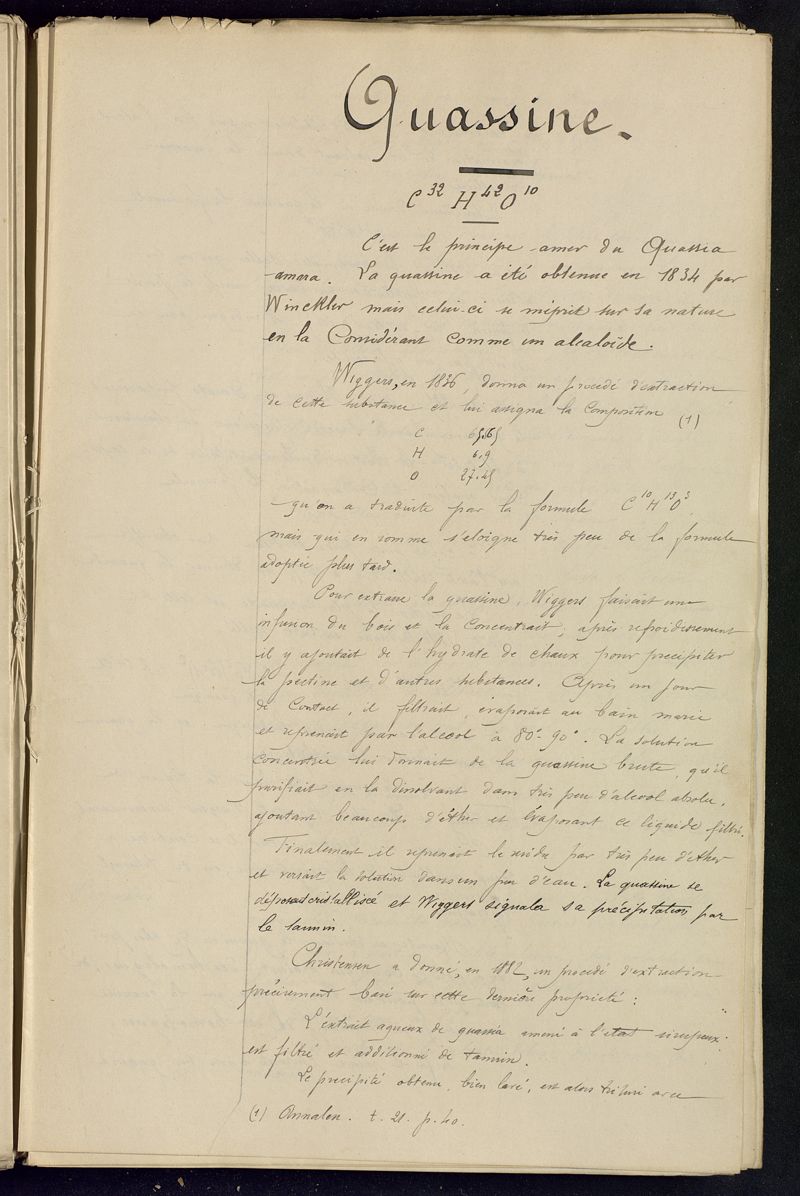 Quassine.
C³² H⁴² O¹⁰
C'est le principe amer du Quassia
amara. La quassine a été obtenue en 1834 par
Winckler mais celui-ci se méprit sur sa nature
en la Considérant comme un alcaloïde.
Wiggers, en 1836, donna un procédé d'extraction
de cette substance et lui assigna la Composition (1)
C 65.65
H 6.9
O 27.45
qu'on a traduite par la formule C¹⁰H¹³O³,
mais qui en somme s'éloigne très peu de la formule
adoptée plus tard.
Pour extraire la quassine, Wiggers faisait une
infusion du bois et la Concentrait; après refroidissement
il y ajoutait de l'hydrate de chaux pour précipiter
la pectine et d'autres substances. Après un jour
de Contact, il filtrait, évaporait au bain marie
et reprenait par l'alcool à 80°-90°. La solution
concentrée lui donnait de la quassine brute, qu'il
purifiait en la dissolvant dans très peu d'alcool absolu,
ajoutant beaucoup d'éther et évaporant ce liquide filtré.
Finalement il reprenait le résidu par très peu d'éther
et versait la solution dans un peu d'eau. La quassine se
déposait cristallisée et Wiggers signala sa précipitation par
le tannin.
Christensen a donné, en 1882, un procédé d'extraction
précisément basé sur cette dernière propriété:
L'extrait aqueux de quassia amené à l'état sirupeux
est filtré et additionné de tannin.
Le précipité obtenu, bien lavé, est alors trituré avec
(1) Annalen. t. 21. p. 40.